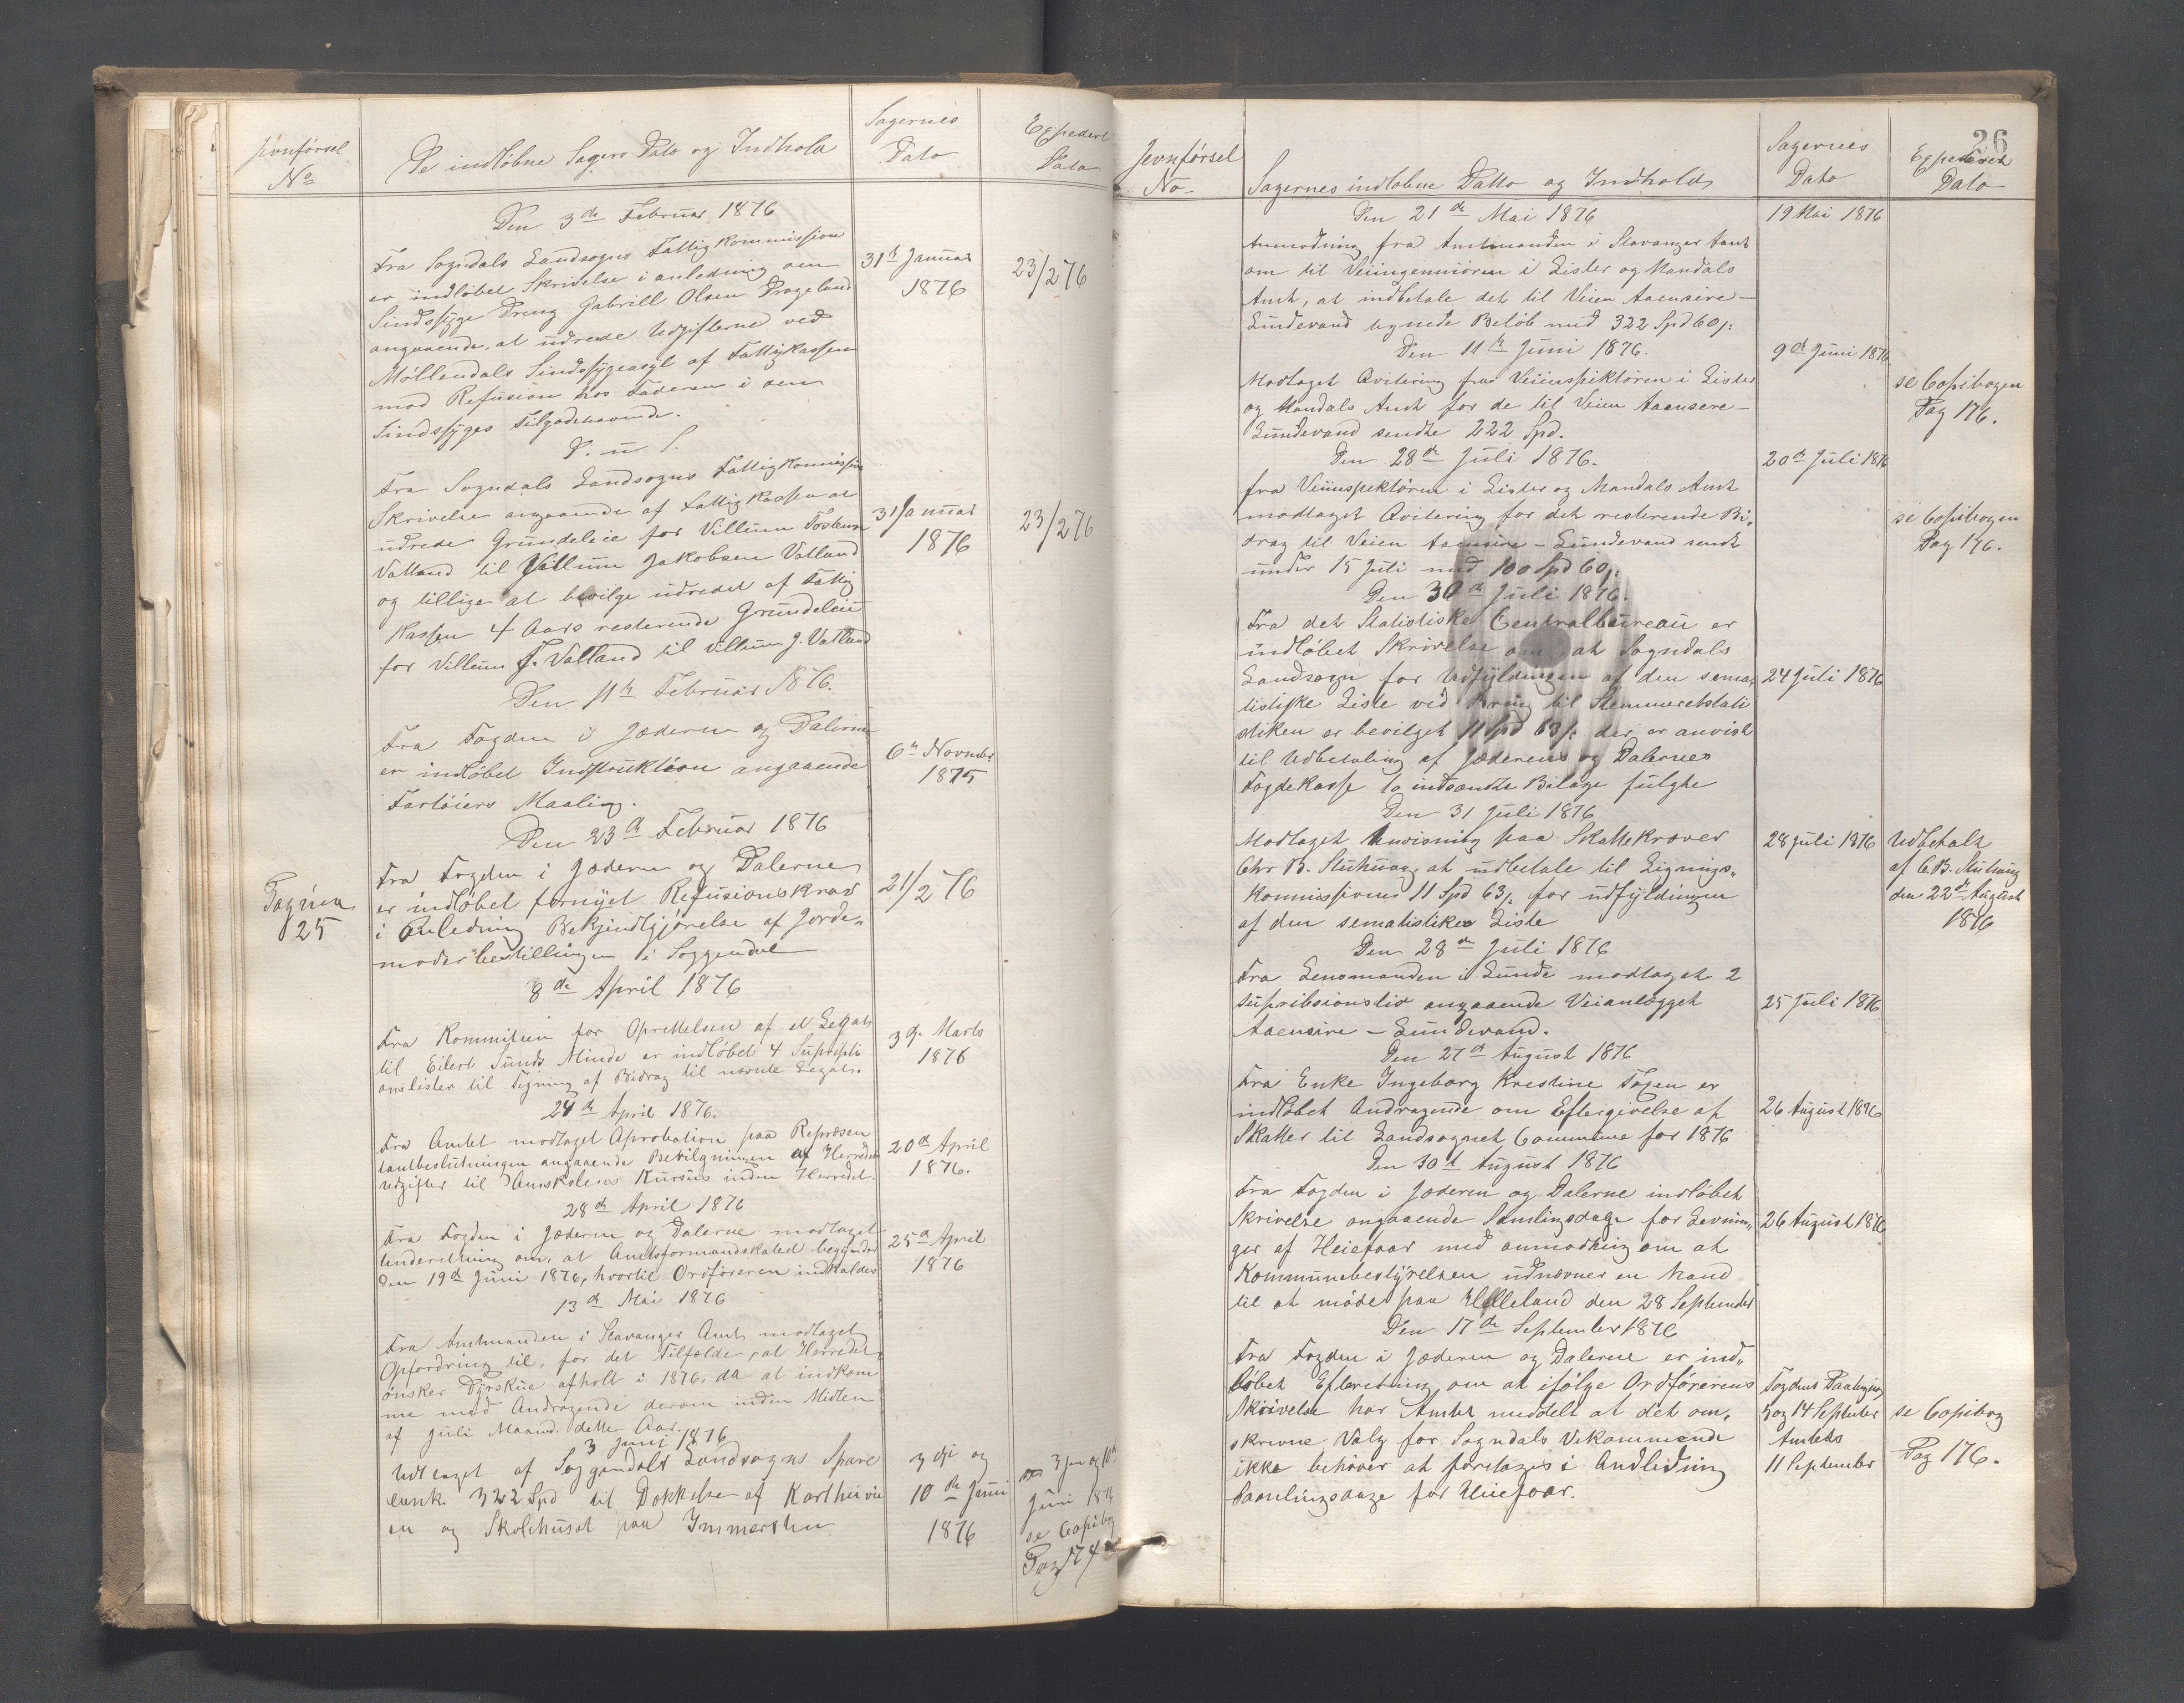 Jevnførsel
No
De indløbne Sagers Dato og Indhold
Sagernes
Dato
Expedert
Dato
Den 3de Februar 1876
Fra Sogndals Landsogns Fattigkommission
er indløbet Skrivelse i anledning om
Sindssyge Dreng Gabriell Olsen Drageland
angaaende, at udrede Udgifterne ved
Møllendals Sindssygeasyl af Fattigkassen
mod Refusion hos Faderen i den
Sindssyges Tilgodehavende.
31te Januar
1876
23/2 76
D. u S.
Fra Sogndals Landsogns Fattigkommission
Skrivelse angaaende af Fattigkassen at
udrede Grundeleie for Villum Tostensen
Vatland til Villum Jakobsen Vatland
og tillige at bevilge udredet af Fattig
Kassen 4 Aars resterende Grundeleie
for Villum T. Vatland til Villum J. Vatland
31 Januar
1876
23/2 76
Den 11te Februar 1876.
Fra Fogden i Jæderen og Dalerne
er indløbet Indstruktion angaaende
Fartøiers Maaling.
6te November
1875
Den 23de Februar 1876
Fra Fogden i Jæderen og Dalerne
er indløbet fornyet Refusionskrav
i Anledning Bekjendtgjørelse af Jorde„
moderbestillingen i Soggendal
Pagina
25
21/2 76
8de April 1876
Fra Kommiteen for Oprettelsen af et Legat
til Eilert Sunds Minde er indløbet 4 Suscripti
onslister til Tegning af Bidrag til nævnte Legat.
3de Marts
1876
24de April 1876.
Fra Amtet modtaget Aprobation paa Repræsen
tantbeslutningen angaaende Bevilgningen af Herredets
udgifter til Amtskolens Kursus inden Herredet.
20de April
1876.
28de April 1876
Fra Fogden i Jæderen og Dalerne modtaget
Underretning om, at Amtsformandskabet begynder
den 19de Juni 1876, hvortil Ordføreren indkaldes
25de April
1876
13de Mai 1876
Fra Amtmanden i Stavanger Amt modtaget
Opfordring til, for det Tilfælde, at Herredet
ønsker Dyrskue afholt i 1876, da at indkom
me med Andragende derom inden Midten
af Juli Maaned dette Aar.
3 Juni 1876
Udtaget af Soggendals Landsogns Spare
bank 322 Spd til Dækkelse af Karthusvei
en og Skolehuset paa Immerstein
3die og
10de Juni
1876
3 Juni og 10de
Juni 1876
se Copibog
Pag 174
26
Jevnførsel
No
Sagernes indløbne Datto og Indhold
Sagernes
Dato
Expederet
Dato
Den 21de Mai 1876
19 Mai 1876
Anmodning fra Amtmanden i Stavanger Amt
om til Veiingeniøren i Lister og Mandals
Amt, at indbetale det til Veien Aaensire—
Lundevand lignede Beløb med 322 Spd 60 s:
Den 11te Juni 1876.
9de Juni 1876
Modtaget Qvitering fra Veiinspektøren i Lister
og Mandals Amt for de til Veien Aaensire—
Lundevand sendte 222 Spd.
se Copibogen
Pag 176.
Den 28de Juli 1876.
20de Juli 1876
fra Veiinspektøren i Lister og Mandals Amt
modtaget Qvitering for det resterende Bi„
drag til Veien Aaensire—Lundevand sendt
under 15 Juli med 100 Spd 60 s:
se Copibogen
Pag 176.
Den 30de Juli 1876.
Fra det Statistiske Centralbureau er
indløbet Skrivelse om, at Sogndals
Landsogn for Udfyldningen af den sema„
tistiske Liste ved Brug til Stemmeretstati
stiken er bevilget 11 Spd 63 s: der er anvist
til Udbetaling af Jæderens og Dalernes
Fogdekasse to indsendte Bilage fulgte
24 Juli 1876
Den 31 Juli 1876
Modtaget Anvisning paa Skattekræver
Chr B. Stuhaug at udbetale til Lignings„
kommissionens 11 Spd 63 s. for udfyldningen
af den sematistiske Liste
28 Juli 1876
Udbetalt
af C.B. Stuhaug
den 22de August
1876
Den 28de Juli 1876
Fra Lensmanden i Lunde modtaget 2
supribsionslis angaaende Veianlægget
Aaensire—Lundevand.
25 Juli 1876
Den 27de August 1876
Fra Enke Ingeborg Krestine Fogen er
indløbet Andragende om Eftergivelse af
Skatter til Landsognet Commune for 1876
26 August 1876
Den 30te August 1876
Fra Fogden i Jæderen og Dalerne indløbet
Skrivelse angaaende Samlingsdage for Levnin„
ger af Heiefaar med anmodning om at
Kommunebestyrelsen udnævner en Mand
til at møde paa Helleland den 28 September
26 August 1876
Den 17de September 1876
Fra Fogden i Jæderen og Dalerne er ind„
løbet Efterretning om at ifølge Ordførerens
Skrivelse har Amtet meddelt at det om„
skrevne Valg for Sogndals Vekommende
ikke behøver at foretages i Andledning
Samlingsdage for Heiefaar.
Fogdens Paategning
5 og 14 September
Amtets
11 September
se Copibog
Pag 176.